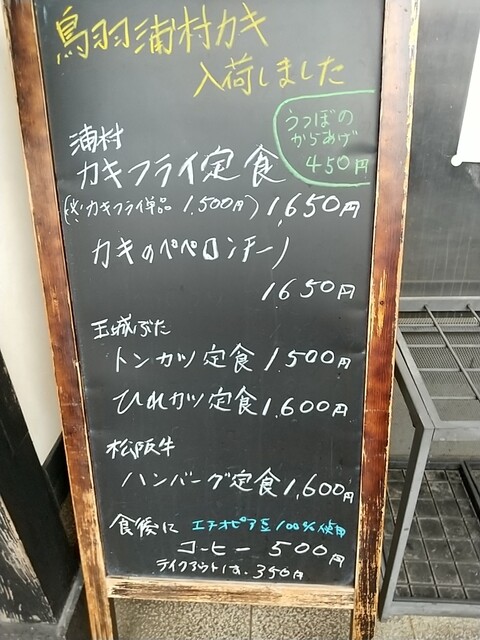 鳥羽浦村カキ
入荷しました
うつぼの
からあげ
450円
浦村
カキフライ定食
(※カキフライ単品 1,500円) 1,650円
カキのペペロンチーノ
1650円
玉城ぶた
トンカツ定食 1,500円
ひれカツ定食 1,600円
松阪牛
ハンバーグ定食 1,600円
食後に エチオピア豆100%使用
コーヒー 500円
テイクアウトは、350円